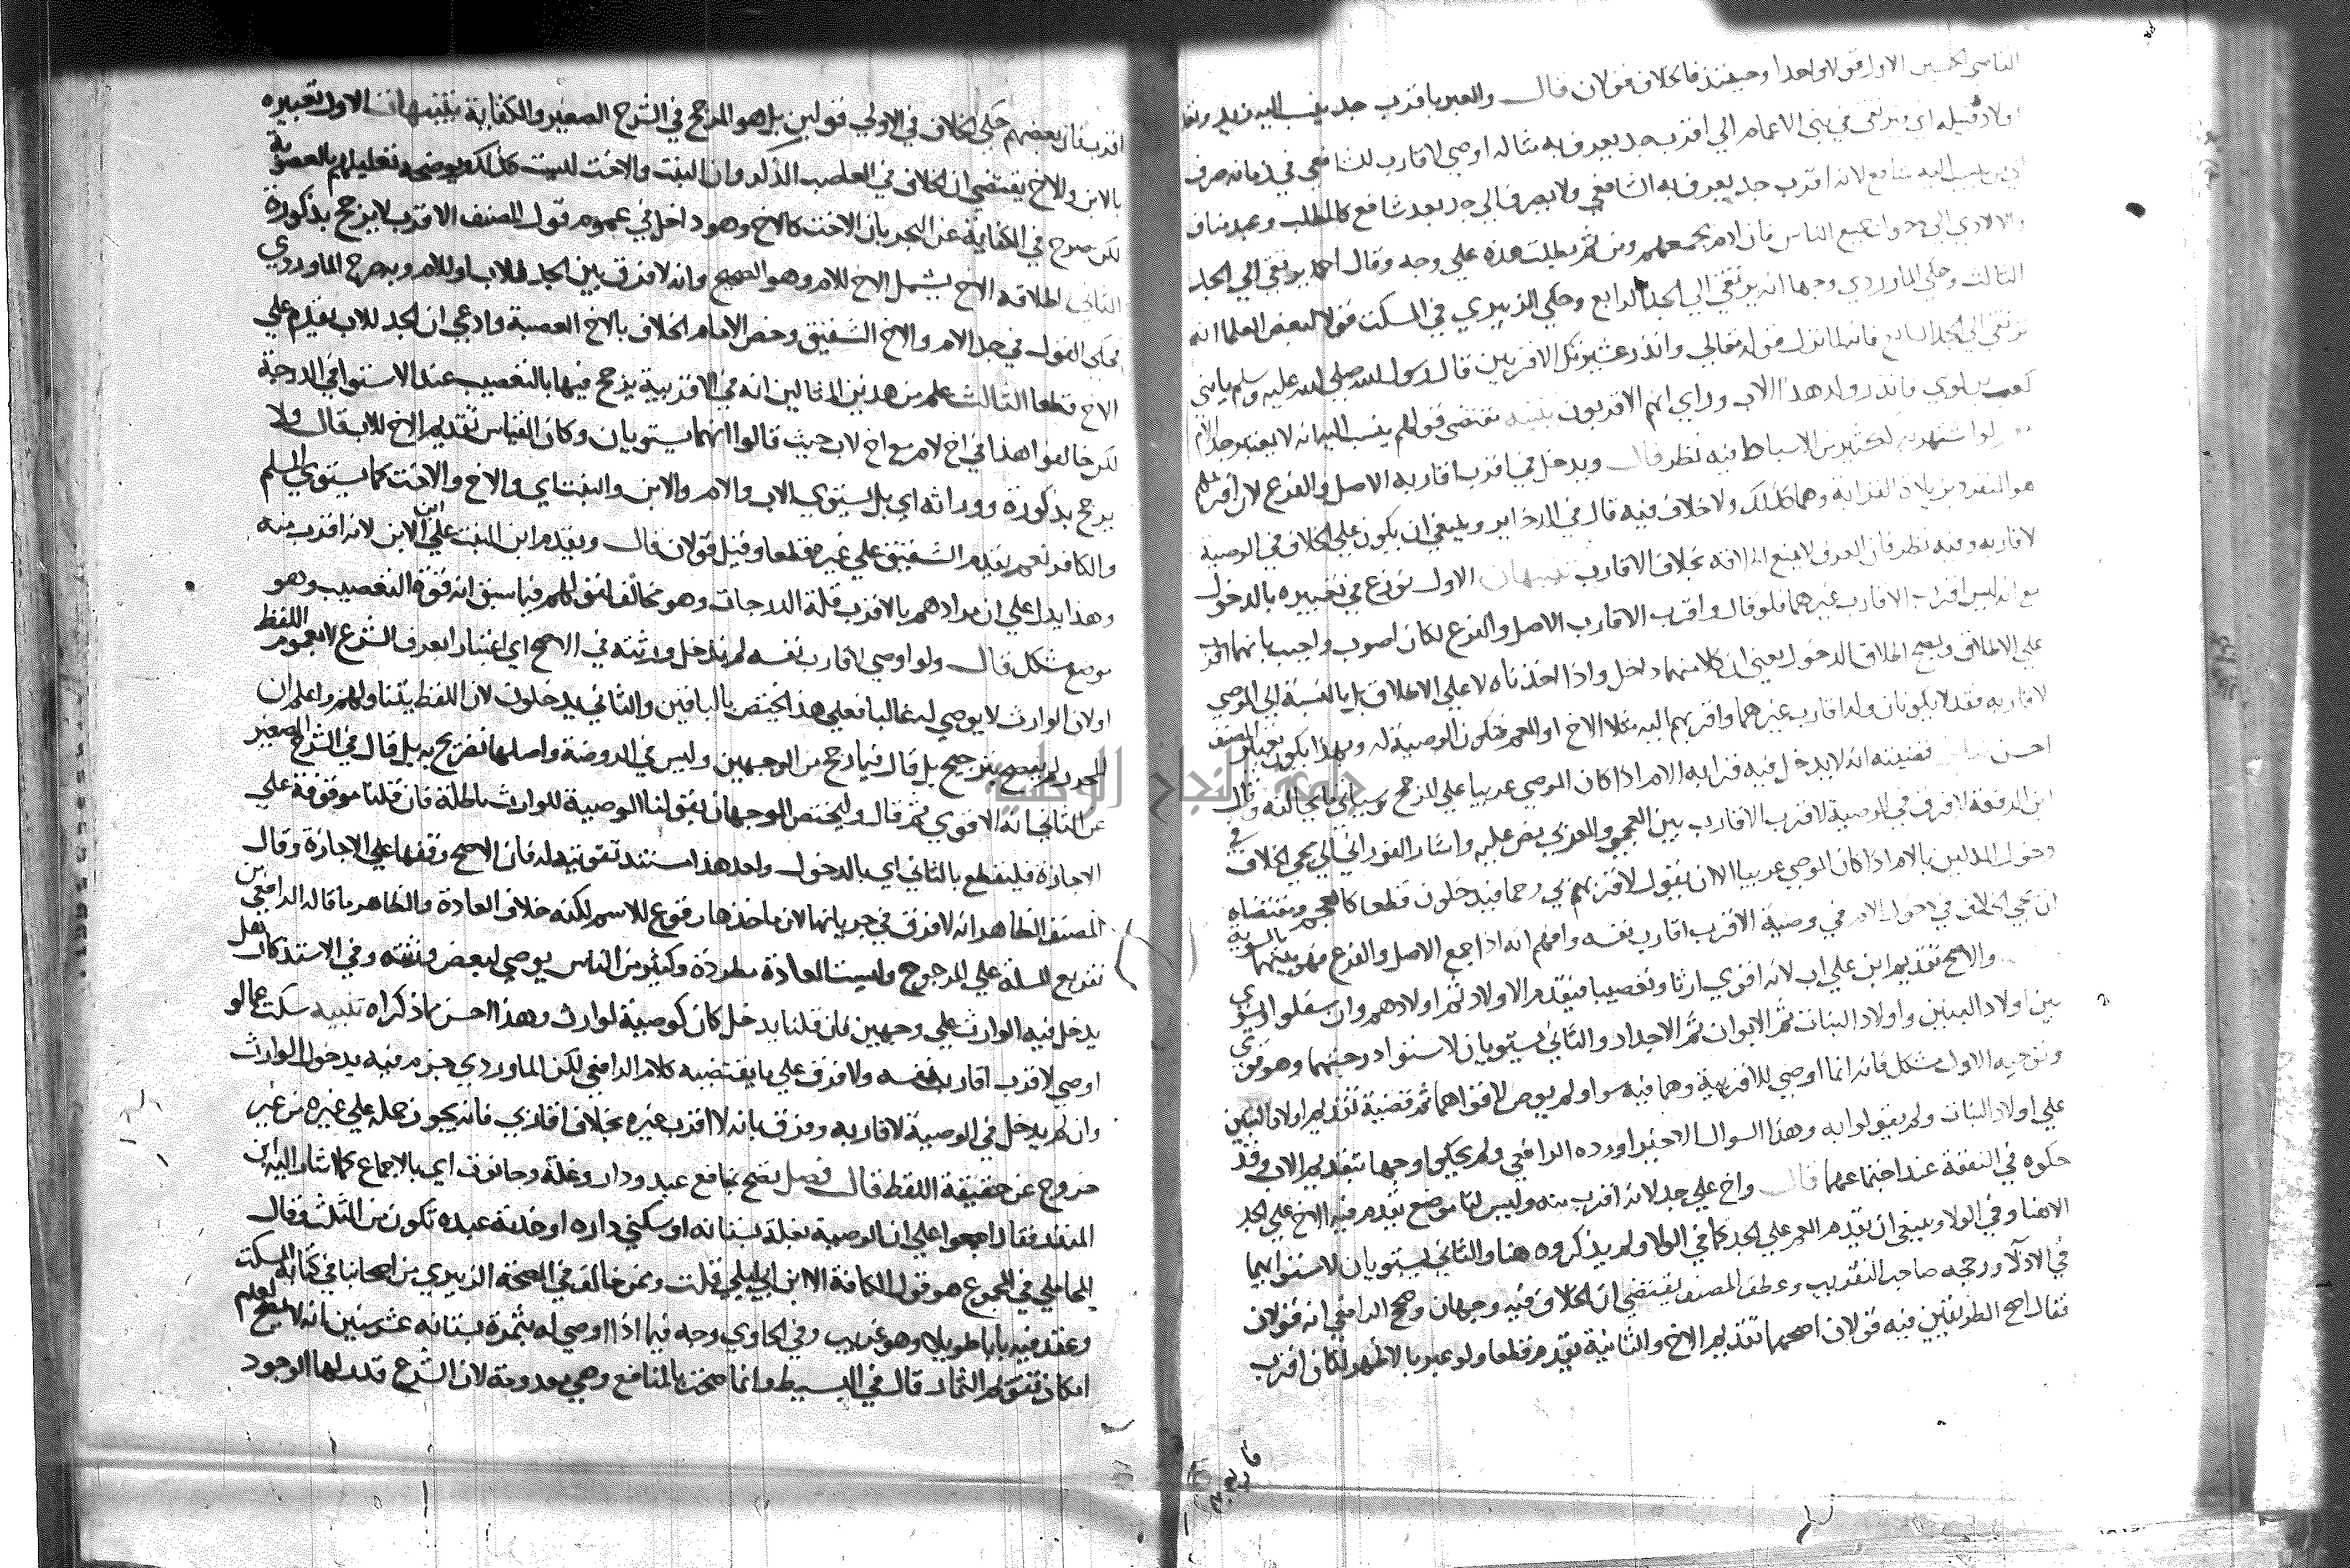 القاضي الحسين الاول قولا واحدا وحينئذ فالخلاف قولان قال والعبرة باقرب جد ينسب اليه زيد وتعد
اولاده قبيله اي ويرتقي في بني الاعمام الي اقرب جد يعرف به مثاله اوصي لاقارب الشافعي في زمانه صرف
الي من ينسب اليه شافع لانه اقرب جد يعرف به الشافعي ولا يصرف الي جد بعد شافع كالمطلب وعبد مناف
والا لادي الي دخول جميع الناس فان ادم يجمعهم ومن ثم بطلت هذه علي وجه وقال احمد يرتقي الي الجد
الثالث وحكي الماوردي وجها انه يرتقي الي الجد الرابع وحكي الزبيري في المسكت قولا لبعض العلما انه
يرتقي الي الجد السابع فانه لما نزل قوله تعالي وانذر عشيرتك الاقربين قال رسول الله صلي الله عليه وسلم يا بني
كعب بن لوي فانذر ولد هذا الاب وراي انهم الاقربون تنبيه مقتضي قولهم ينسب اليه انه لا يعتبر جد الام
لو اشتهر به لكثير من الاسباط فيه نظر قال ويدخل في اقرب اقاربه الاصل والفرع لان اقربهم
هو المنفرد بزيادة القرابة وهما كذلك ولا خلاف فيه قال في الذخاير وينبغي ان يكون علي الخلاف في الوصية
لاقاربه وفيه نظر فان العرف لا يمنع اطلاقه بخلاف الاقارب تنبيهان الاول نوزع في تعبيره بالدخول
مع انه ليس اقرب الاقارب غيرهما فلو قال واقرب الاقارب الاصل والفرع لكان اصوب واجيب بانهما اقرب
علي الاطلاق ويصح اطلاق الدخول يعني ان كلا منهما داخل واذا اخذناه لا علي الاطلاق بل بالنسبة الي الموصي
لاقاربه فقد لا يكونان وله اقارب غيرهما واقربهم اليه مثلا الاخ او العم فتكون الوصية له وبهذا يكون تعبير المصنف
احسن قضيته انه لا يدخل فيه قرابه الام اذا كان الموصي عربيا علي المرجح وسياتي ما يخالفه وقال
ابن الرفعة لا فرق في الوصية لاقرب الاقارب بين العجمي والعربي نص عليه واشار الفوراني الي مجي الخلاف في
دخول المدلين بالام اذا كان الموصي عربيا الا ان يقول لاقربهم بي رحما فيدخلون قطعا كالعجم ومقتضاه
ان يجي الخلاف في دخول الام في وصية الاقرب اقارب نفسه وافهم انه اذا اجتمع الاصل والفرع فهو بينهما بالسوية
والاصح تقديم ابن علي اب لانه اقوي ارثا وتعصيبا فيقدم الاولاد ثم اولادهم وان سفلوا ويسوي
بين اولاد البنين واولاد البنات ثم الابوان ثم الاجداد والثاني يستويان لاستوا درجتهما وهو قوي
وتوجيه الاول مشكل فانه انما اوصي للاقربية وهما فيه سوا ولم يوص لاقواهما ثم قضية تقديم اولاد البنين
علي اولاد البنات ولم يقولوا به وهذا السوال الاخير اورده الرافعي ولم يحكوا وجها بتقديم الاب وقد
حكوه في النفقة عند اجتماعهما قال واخ علي جد لانه اقرب منه وليس لنا موضع يقدم فيه الاخ علي الجد
الا هنا وفي الولا وينبغي ان يقدم العم علي الجد كما في الولا ولم يذكروه هنا والثاني يستويان لاستوايهما
في الادلا ورجحه صاحب التقريب وعطف المصنف يقتضي ان الخلاف فيه وجهان وصحح الرافعي انه قولان
فقال اصح الطريقين فيه قولان اصحهما تقديم الاخ والثانية يقدم قطعا ولو عبر بالاظهر لكان اقرب
فان بعضهم
اقرب فان بعضهم حكي الخلاف في الاولي قولين بل هو المرجح في الشرح الصغير والكفاية تنبيهات الاول تعبيره
بالابن والاخ يقتضي ان الخلاف في العاصب الذكر وان البنت والاخت ليست كذلك ويوضحه تعليلهم بالعصوبة
لكن صرح في الكفاية عن البحر بان الاخت كالاخ وهو داخل في عموم قول المصنف الاقرب لا يرجح بذكورة
الثاني اطلاقه الاخ يشمل الاخ للام وهو الصحيح وانه لا فرق بين الجد للاب او للام وبه صرح الماوردي
فحكي القول في جد الام والاخ الشقيق وخص الامام الخلاف بالاخ العصبة وادعي ان الجد للاب يقدم علي
الاخ قطعا الثالث علم من هذين المثالين انه في الاقربية يرجح فيها بالتعصيب عند الاستوا في الدرجة
لكن خالفوا هذا في اخ لام مع اخ لاب حيث قالوا انهما يستويان وكان القياس تقديم الاخ للاب قال ولا
يرجح بذكورة ووراثة اي بل يستوي الاب والام والابن والبنت اي والاخ والاخت كما يستوي المسلم
والكافر نعم يقدم الشقيق علي غيره قطعا وقيل قولان قال ويقدم ابن البنت علي ابن ابن الابن لانه اقرب منه
وهذا يدل علي ان مرادهم بالاقرب قلة الدرجات وهو مخالف لقولهم فيما سبق انه قوة التعصيب وهو
موضع مشكل قال ولو اوصي لاقارب نفسه لم تدخل ورثته في الاصح اي اعتبارا بعرف الشرع لا بعموم اللفظ
اولان الوارث لا يوصي له غالبا فعلي هذا يختص بالباقين والثاني يدخلون لان اللفظ يتناولهم واعلم ان
المحرر لم يفصح بترجيح بل قال فيما رجح من الوجهين وليس في الروضة واصلها تصريح به بل قال في الشرح الصغير
عن الثاني انه الاقوي ثم قال وليختص الوجهان بقولنا الوصية للوارث باطلة فان قلنا موقوفة علي
الاجازة فليقطع بالثاني اي بالدخول ولعل هذا مستند تقويته له فان الاصح وقفها علي الاجازة وقال
المصنف الظاهر انه لا فرق في جريانهما لان ماخذها وقوع للاسم لكنه خلاف العادة والظاهر ما قاله الرافعي من
تفريع المسلة علي المرجوح وليست العادة مطردة وكثير من الناس يوصي لبعض ورثته وفي الاستذكار هل
يدخل فيه الوارث علي وجهين فان قلنا يدخل كان كوصية لوارث وهذا احسن مما ذكراه تنبيه سكت عما لو
اوصي لاقرب اقارب نفسه ولا فرق علي ما يقتضيه كلام الرافعي لكن الماوردي جزم فيه بدخول الوارث
وان لم يدخل في الوصية لاقاربه وفرق بانه لا اقرب غيره بخلاف اقاربي فانه يجوز حمله علي غيره من غير
خروج عن حقيقة اللفظ قال فصل تصح بمنافع عبد ودار وغلة وحانوت اي بالاجماع كما اشار اليه ابن
المنذر فقال اجمعوا علي ان الوصية بغلة بستانه او سكني داره او خدمة عبده تكون من الثلث وقال
المحاملي في المجموع هو قول الكافة الا ابن ابي ليلي قلت وممن خالف في الصحة الزبيري من اصحابنا في كتابه المسكت
وعقد فيه بابا طويلا وهو غريب وفي الحاوي وجه فيما اذا اوصي له بثمرة بستانه عشر سنين انه لا يصح لعدم
امكان تقويم الثمار قال في البسيط وانما صحت بالمنافع وهي معدومة لان الشرع قدر لها الوجود